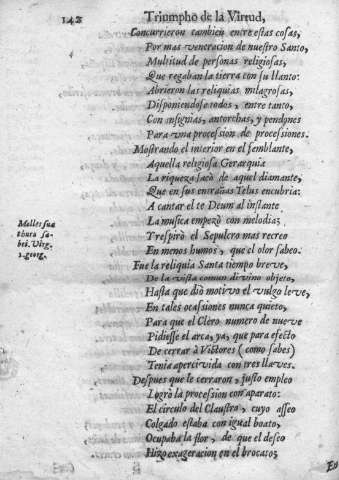 142
Triumpho de la Virtud,
Concurrieron tambien entre estas cosas,
Por mas veneracion de nuestro Santo,
Multitud de personas religiosas,
Que regaban la tierra con su llanto:
Abrieron las reliquias milagrosas,
Disponiendose todos, entre tanto,
Con insignias, antorchas, y pendones
Para vna procession de processiones.
Mostrando el interior en el semblante,
Aquella religiosa Gerarquia
La riqueza sacò de aquel diamante,
Que en sus entrañas Telus encubria:
A cantar el te Deum al instante
La musica empezò con melodia;
Y respirò el Sepulcro mas recreo
En menos humos, que el olor sabeo.
Molles sua
thura sa-
bei. Virg.
1. georg.
Fue la reliquia Santa tiempo breve,
De la vista comun divino objeto,
Hasta que diò motivo el vulgo leve,
En tales ocassiones nunca quieto,
Para que el Clero numero de nueve
Pidiesse el arca, ya, que para efecto
De cerrar à Victores (como sabes)
Tenia apercivida con tres llaves.
Despues que le cerraron, justo empleo
Logrò la procession con aparato:
El circulo del Claustro, cuyo asseo
Colgado estaba con igual boato,
Ocupaba la flor, de que el deseo
Hizo exageracion en el brocato;